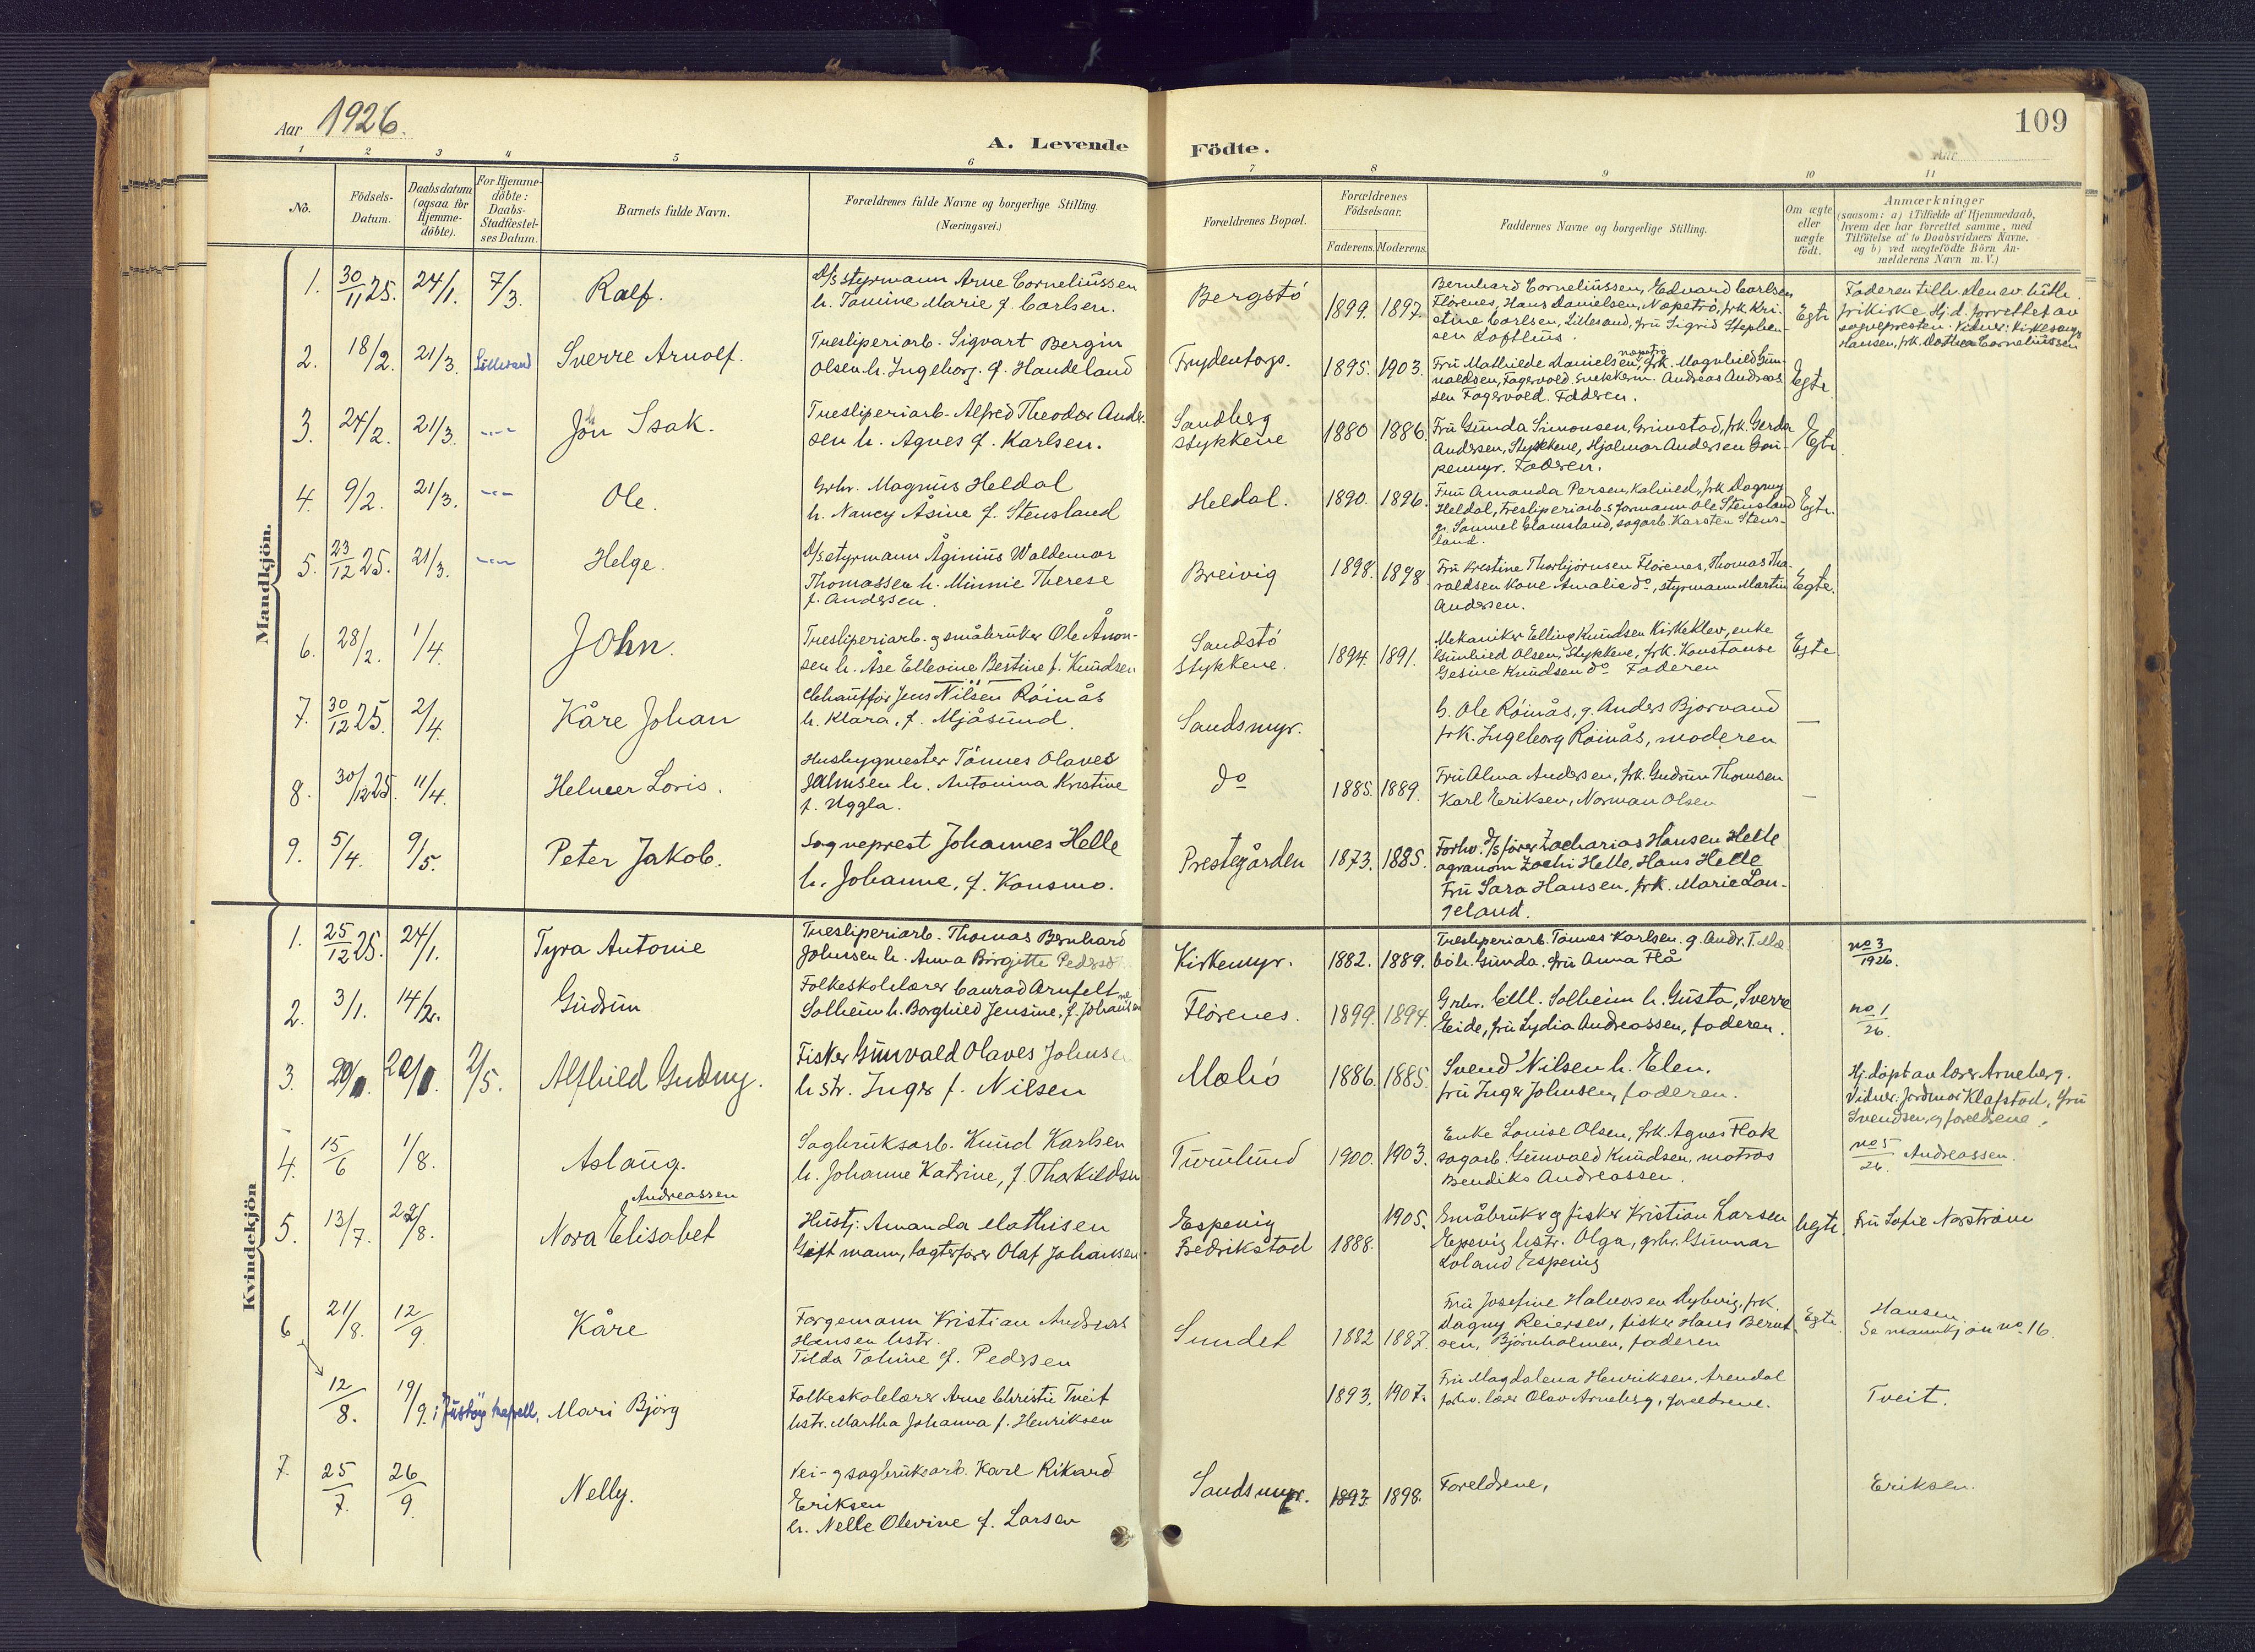 109
Aar 1926.
Aar
A. Levende Födte.
1 2 3 4 5 6 7 8 9 10 11
No.
Födsels-
Datum.
Daabsdatum
(ogsaa for
Hjemme-
döbte).
For Hjemme-
döbte:
Daabs-
Stadfæstel-
ses Datum.
Barnets fulde Navn.
Forældrenes fulde Navne og borgerlige Stilling.
(Næringsvei.)
Forældrenes Bopæl.
Forældrenes
Födselsaar.
Faderens. Moderens.
Faddernes Navne og borgerlige Stilling.
Om ægte
eller
uægte
født.
Anmærkninger
(saasom: a) i Tilfælde af Hjemmedaab,
hvem der har forrettet samme, med
Tilföielse af to Daabsvidners Navne.
og b) ved uægtefödte Börn An-
melderens Navn m. V.)
Mandkjön.
1. 30/11 25. 24/1. 7/3. Ralf.
D/s styrmann Arne Corneliussen
h. Tomine Marie f. Carlsen.
Bergstö 1899. 1897.
Bernhard Corneliussen, Edvard Carlsen
Flörenes, Hans Danielsen, Nopetrö, frk. Kri-
stine Carlsen, Lillesand, fru Sigrid Stephen-
sen Lofthus.
Egte
Faderen tilh. den ev. luth.
frikirke Hj.d. forrettet av
sognepresten. Vidner: Kirkesang
Hansen, frk. Dorthea Corneliussen
2. 18/2. 21/3. Lillesand Sverre Arnolf.
Tresliperiarb. Sigvart Bergin
Olsen h. Ingeborg. f. Haudeland
Frydentops. 1895. 1903.
Fru Mathilde Danielsen, nopetrö frk. Magnhild Gun-
naldsen, Fagervold. Snekkerm. Andreas Andreas
sen Fagervold. Faderen.
Egte
3. 24/2. 21/3. -"- Jon Isak.
Tresliperiarb. Alfred Theodor Ander
sen h. Agnes f. Karlsen.
Sandberg
stykkene 1880 1886.
Fru Gunda Simonsen, Grimstad, frk. Gerda
Andersen, Stykkene, Hjalmar Andersen Gau-
penmyr. Faderen.
Egte
4. 9/2. 21/3. -"- Ole.
Grbr. Magnus Heldal
h. Nancy Åsine f. Stensland
Heldal. 1890. 1896.
Fru Amanda Persen, Kalvild, frk Dagny
Heldal, Tresliperiarb.s formann Ole Stensland
g. Samuel Glamsland, sagarb. Karsten Stens-
land.
Egte.
5. 23/12 25. 21/3. -"- Helge.
D/s styrmann Åginius Waldemar
Thomassen h. Minnie Therese
f. Andersen.
Breivig 1898. 1898.
Fru Kristine Thorbjörnsen Flörenes, Thomas Tha-
raldsen kone Amalie do, styrmann Martin
Andersen.
Egte.
6. 28/2. 1/4. John.
Tresliperiarb. g småbruker Ole Ånon-
sen h. Åse Ellevine Bertine f. Knudsen
Sandstö
stykkene. 1894. 1891.
Mekaniker Elling Knudsen Kirkeklev, enke
Gunhild Olsen, Stykkene, frk. Konstanse
Gesine Knudsen do Faderen
Egte
7. 30/12 25. 2/4. Kåre Johan
Chaufför Jens Nilsen Röinås
h. Klara, f. Mjåsund.
Sandsmyr.
G. Ole Röinås, g. Anders Bjorvand
frk. Ingeborg Röinås, moderen
—
8. 30/12 25. 11/4. Helmer Loris.
Husbygmester Tönnes Olaves
Jahnsen h. Antonina Kristine
f. Uggla.
do 1885. 1889.
Fru Alma Andersen, frk. Gudrun Thomsen
Karl Eriksen, Norman Olsen
—
9. 5/4. 9/5. Peter Jakob.
Sogneprest Johannes Helle
h. Johanne, f. Konsmo.
Prestegården 1873. 1885.
Forhv. D/s förer Zacharias Hansen Helle
agranom Zachi Helle, Hans Helle
Fru Sara Hansen, frk. Marie Lan-
geland.
Kvindekjön
1. 25/12 25. 24/1. Tyra Antonie
Tresliperiarb. Thomas Bernhard
Johnsen h. Anna Birgitte Peders
Kirkemyr. 1882. 1889.
Tresliperiarb. Tönnes Karlsen. g. Andr. T. Mæ
bö h. Gunda. fru Anna Flå
no 3/1926.
2. 3/1. 14/2. Gudrun
Folkeskolelærer Conrad Arnfelt
Solheim h. Borghild Jensine, f. Johannesen
Flörenes. 1899. 1894.
Grbr. Ell. Solheim h. Gusta, Sverre
Eide, fru Lydia Andreassen, faderen.
no 1/26.
3. 2/5. Alfhild Gudny.
Fisker Gunvald Olaves Johnsen
hstr. Inger f. Nilsen
Mæbö 1886. 1885.
Svend Nilsen h. Elen.
fru Inger Johnsen, faderen.
Hj.döpt av lærer Arneberg.
Vidner: Jordmor Klafstad, fru
Svendsen, og foreldrene.
4. 15/6 1/8. Aslaug.
Sagbruksarb. Knud Karlsen
h. Johanne Katrine, f. Thorkildsen
Tunulund 1900. 1903.
Enke Lovise Olsen, frk. Agnes Flak
sagarb. Gunvald Knudsen, matros
Bendiks Andreassen.
no 5/26. Andreassen.
5. 13/7. 22/8. Andreassen
Nora Elisabet
Hustj. Amanda Mathisen
Gift mann, lagterförer Olaf Johansen
Espevig
Fredrikstad 1888. 1905.
Småbruker g fisker Kristian Larsen
Espevig hstr. Olga, grbr. Gunnar
Loland Espevig
Uegte.
Fru Sofie Norström
6 21/8. 12/9. Kåre
Forgemann Kristian Andreas
Hansen hstr.
Tilda Tomine f. Pedersen
Sundet 1882 1887.
Fru Josefine Halvorsen Dybvig, frk.
Dagny Reiersen, fisker Hans Bernt-
sen, Björnholmen, faderen
Egte.
Hansen
Se mannkjön no. 16.
12/8. 19/9. i Justöy kapell, Mari Björg
Folkeskolelærer Arne Christie Tveit
hstr. Martha Johanna f. Henriksen
1893. 1907.
Fru Magdalena Henriksen, Arendal
forhv. lærer Olav Arneberg, foreldrene.
Tveit.
7. 25/7. 26/9. Nelly.
Vei- g sagbruksarb. Karl Rikard
Eriksen
h. Nelle Olevine f. Larsen
Sandsmyr. 1893. 1898.
Foreldrene,
Eriksen.